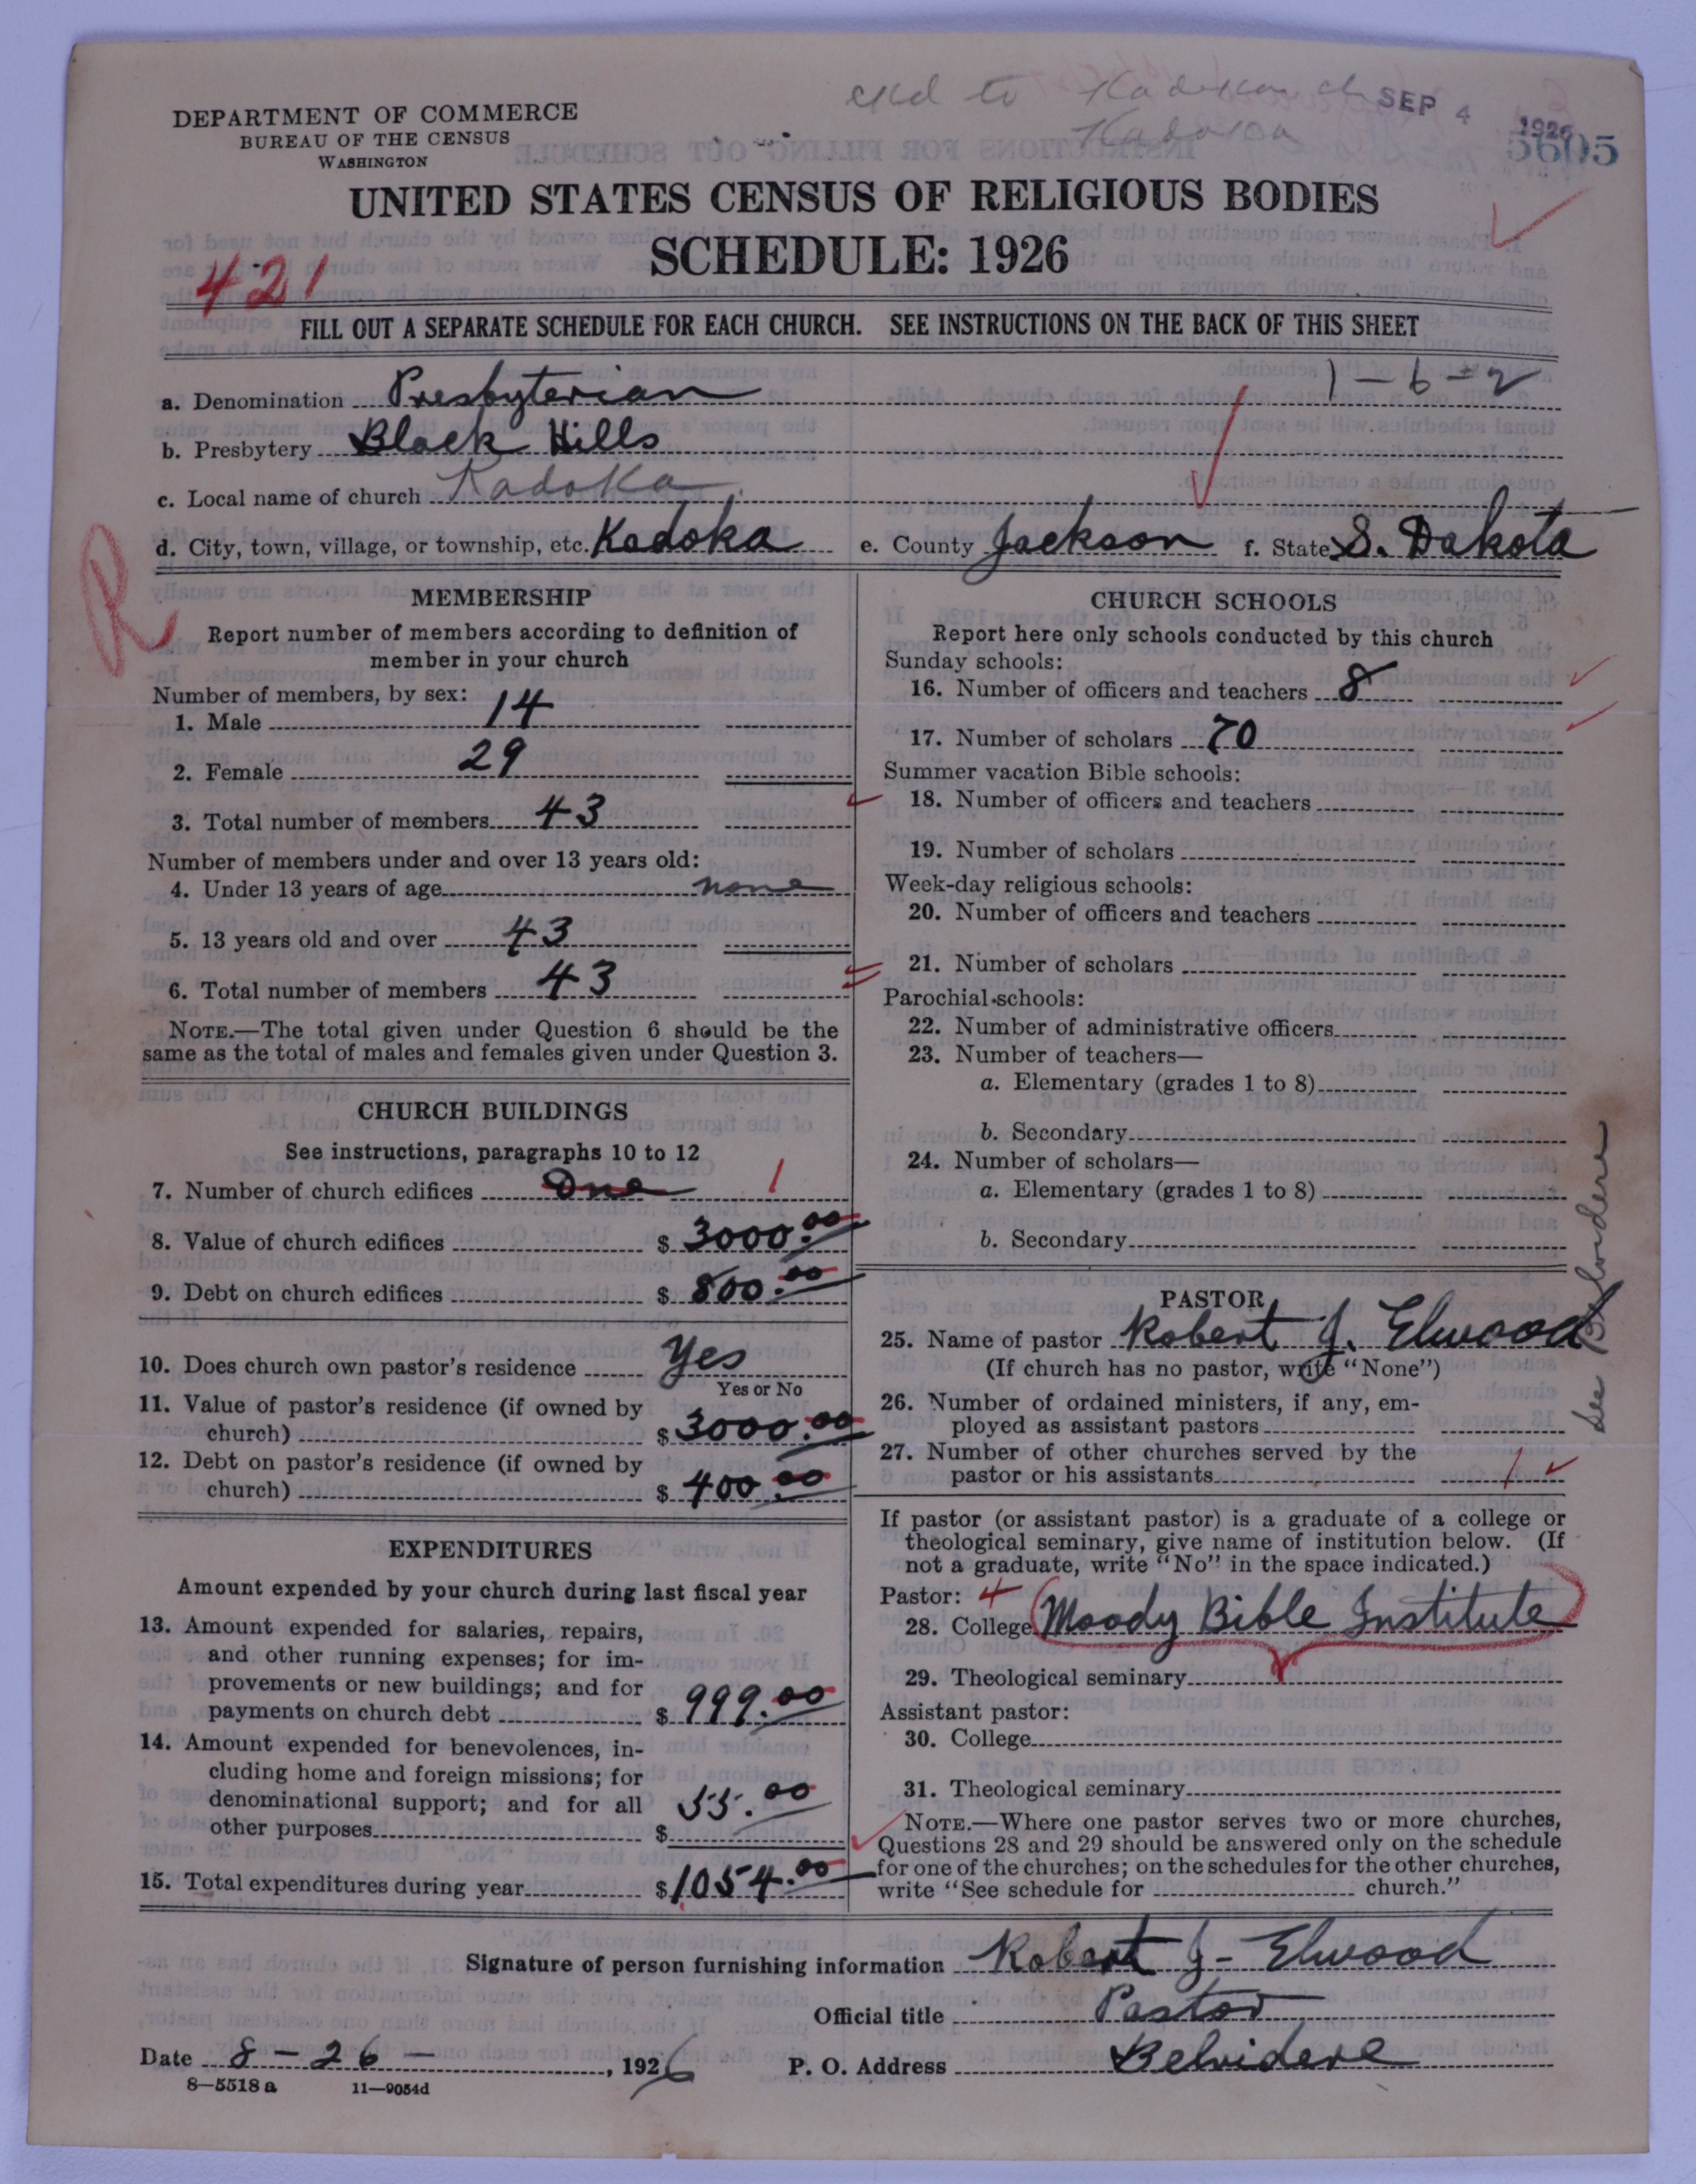 DEPARTMENT OF COMMERCE
BUREAU OF THE CENSUS
WASHINGTON
SEP 4 1926
5605
UNITED STATES CENSUS OF RELIGIOUS BODIES
SCHEDULE: 1926
421
FILL OUT A SEPARATE SCHEDULE FOR EACH CHURCH. SEE INSTRUCTIONS ON THE BACK OF THIS SHEET
1-6-2
a. Denomination Presbyterian
b. Presbytery Black Hills
c. Local name of church Kadoka
d. City, town, village, or township, etc. Kadoka e. County Jackson f. State S. Dakota
R
MEMBERSHIP
Report number of members according to definition of
member in your church
Number of members, by sex:
1. Male 14
2. Female 29
3. Total number of members 43
Number of members under and over 13 years old:
4. Under 13 years of age none
5. 13 years old and over 43
6. Total number of members 43
NOTE.—The total given under Question 6 should be the
same as the total of males and females given under Question 3.
CHURCH BUILDINGS
See instructions, paragraphs 10 to 12
7. Number of church edifices One 1
8. Value of church edifices $ 3000.00
9. Debt on church edifices $ 800.00
10. Does church own pastor's residence Yes
Yes or No
11. Value of pastor's residence (if owned by
church) $ 3000.00
12. Debt on pastor's residence (if owned by
church) $ 400.00
EXPENDITURES
Amount expended by your church during last fiscal year
13. Amount expended for salaries, repairs,
and other running expenses; for im-
provements or new buildings; and for
payments on church debt $ 999.00
14. Amount expended for benevolences, in-
cluding home and foreign missions; for
denominational support; and for all
other purposes $ 55.00
15. Total expenditures during year $ 1054.00
CHURCH SCHOOLS
Report here only schools conducted by this church
Sunday schools:
16. Number of officers and teachers 8
17. Number of scholars 70
Summer vacation Bible schools:
18. Number of officers and teachers
19. Number of scholars
Week-day religious schools:
20. Number of officers and teachers
21. Number of scholars
Parochial schools:
22. Number of administrative officers
23. Number of teachers—
a. Elementary (grades 1 to 8)
b. Secondary
24. Number of scholars—
a. Elementary (grades 1 to 8)
b. Secondary
PASTOR
25. Name of pastor Robert J. Elwood
(If church has no pastor, write "None")
26. Number of ordained ministers, if any, em-
ployed as assistant pastors
27. Number of other churches served by the
pastor or his assistants 1
See Belvidere
If pastor (or assistant pastor) is a graduate of a college or
theological seminary, give name of institution below. (If
not a graduate, write "No" in the space indicated.)
Pastor: 4
28. College Moody Bible Institute
29. Theological seminary
Assistant pastor:
30. College
31. Theological seminary
NOTE.—Where one pastor serves two or more churches,
Questions 28 and 29 should be answered only on the schedule
for one of the churches; on the schedules for the other churches,
write "See schedule for church."
Signature of person furnishing information Robert J. Elwood
Official title Pastor
Date 8-26-, 1926 P. O. Address Belvidere
8—5518 a 11—9054d